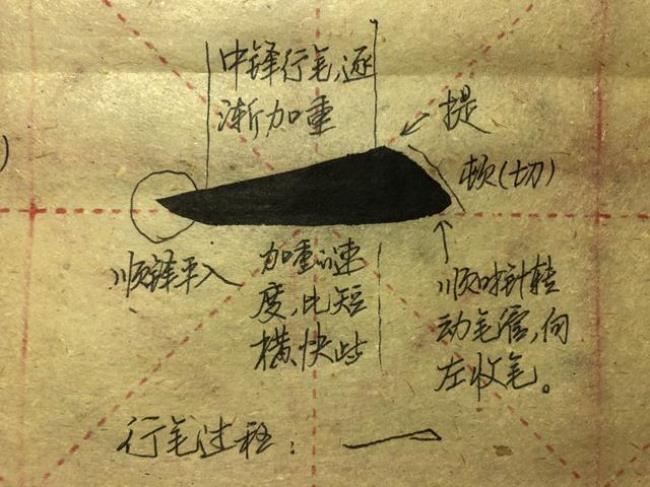 中锋行笔,逐
渐加重
提
顿(切)
顺锋平入
加重速
度,比短
横快些
顺时针转
动笔管,向
左收笔。
行笔过程: